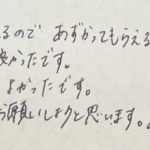 るので あずかってもらえる
良かったです。
よかったです。
お願いしようと思います。